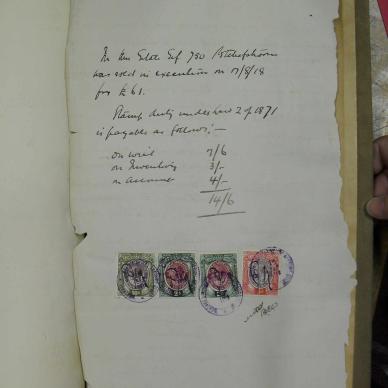 In the Estate Erf 750 Potchefstroom
was sold in execution on 17/8/18
for £61.
Stamp duty under Law 2 of 1871
is payable as follows:—
on will 7/6
on Inventory 3/-
on account 4/-
14/6